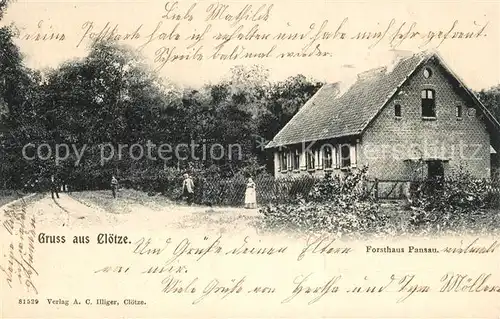 Liebe Mathilde
deine Postkarte habe ich erhalten und habe mich sehr gefreut.
Schreibe bald mal wieder.
copyright
Gruss aus Clötze.
Forsthaus Pansau.
Um Grüße deinen Eltern vielmals
von mir.
Viele Grüße von Hertha und
81529 Verlag A. C. Illiger, Clötze.